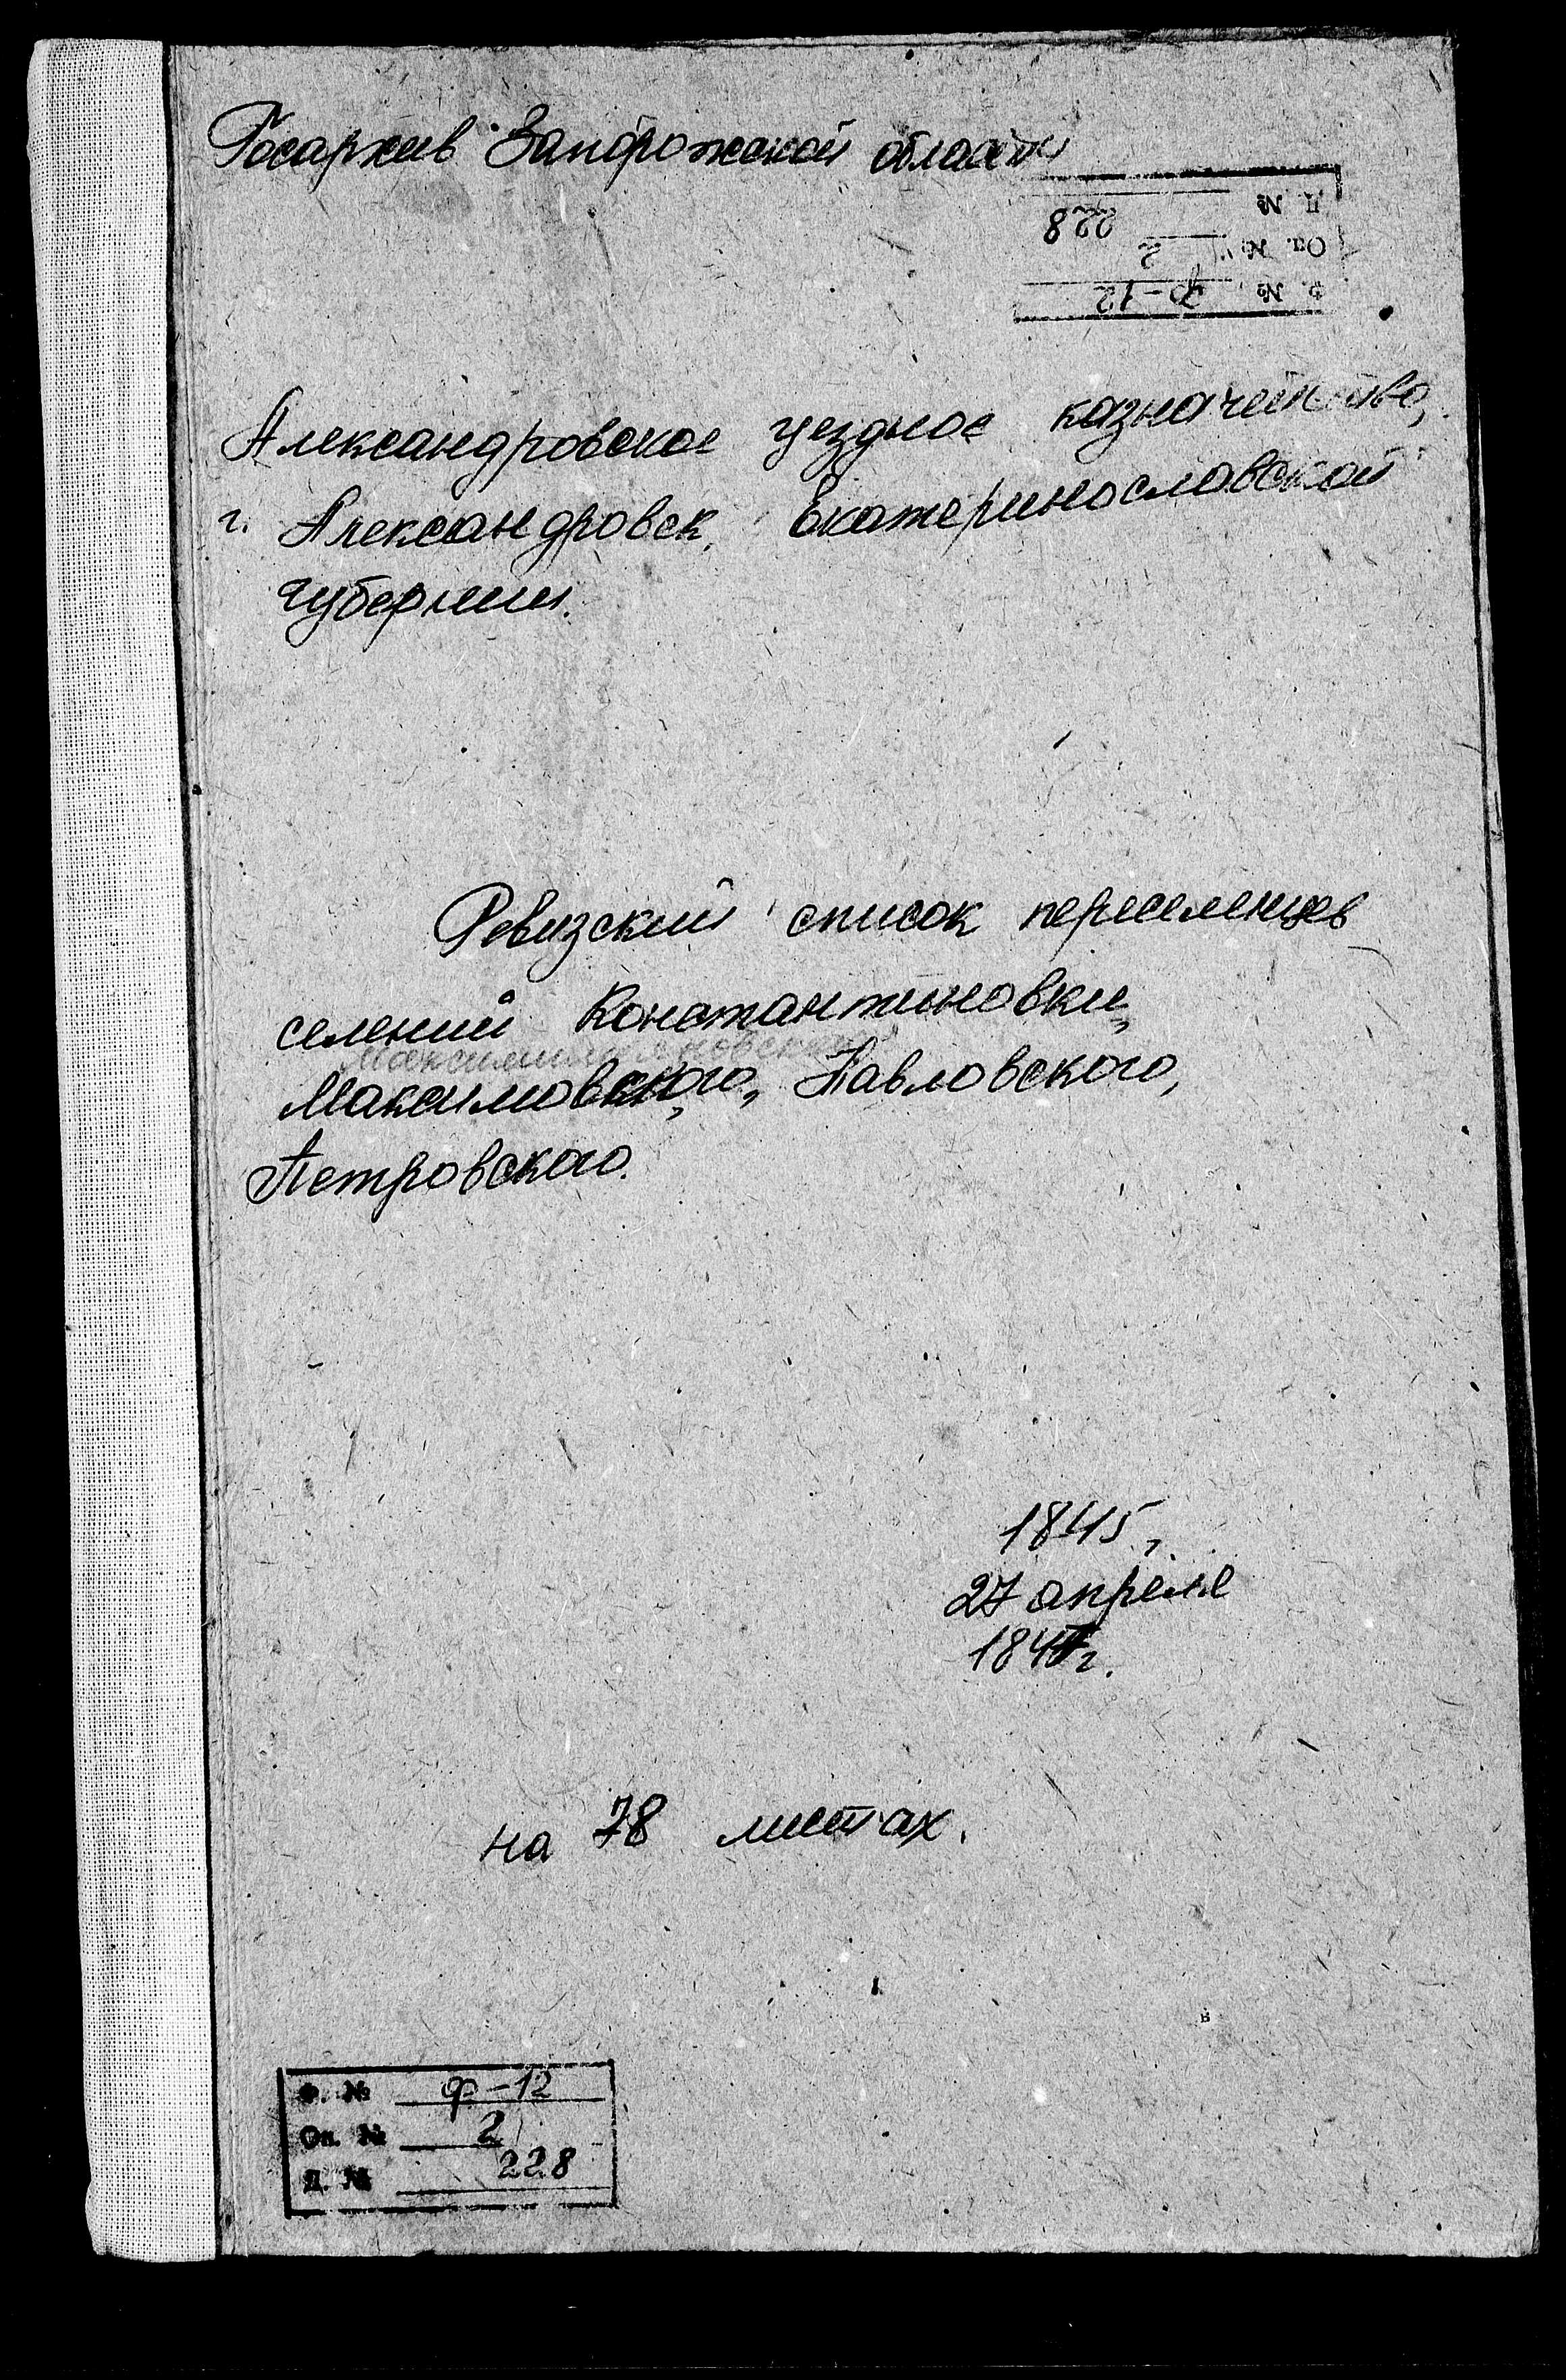 Госархив Запорожской области
Д. № 228
Оп. № 2
Ф. № Ф-12
Александровское уездное казначейство,
г. Александровск, Екатеринославской
губернии.
Ревизский список переселенцев
селений Константиновки,
Максимовского, Павловского,
Петровского.
1845,
27 апреля
на 78 листах.
Ф. № Ф-12
Оп. № 2
Д. № 228